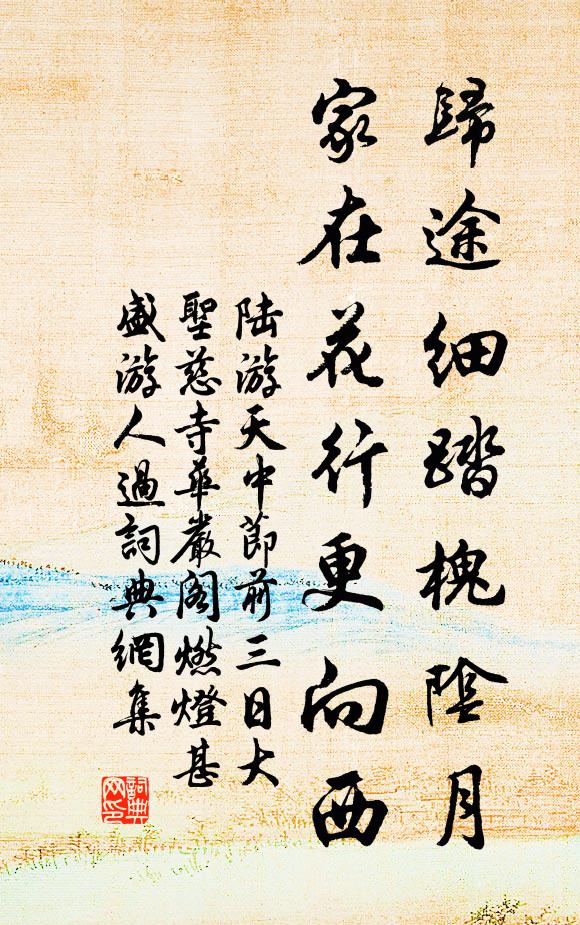 歸途細踏槐陰月
家在花行更向西
陆游天中節前三日大
聖慈寺華嚴閣燃燈甚
盛游人過詞典網集
詞典
网印